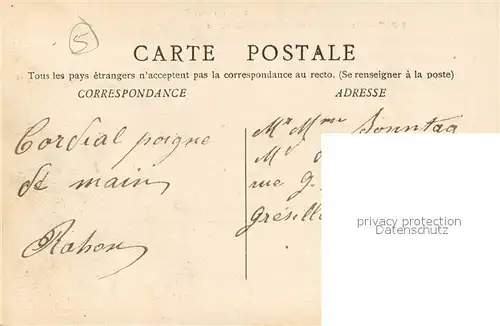 5
CARTE POSTALE
Tous les pays étrangers n'acceptent pas la correspondance au recto. (Se renseigner à la poste)
CORRESPONDANCE
ADRESSE
Cordial poigne
de main
Rahon
Mr Mme Sonntag
Md
rue g.
privacy protection
Datenschutz